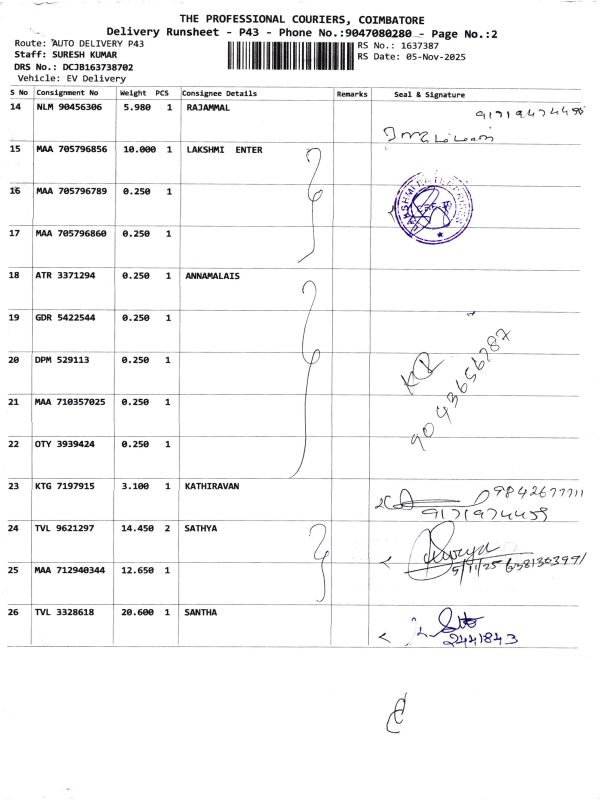 THE PROFESSIONAL COURIERS, COIMBATORE
Delivery Runsheet - P43 - Phone No.:9047080280 - Page No.:2
Route: AUTO DELIVERY P43
Staff: SURESH KUMAR
DRS No.: DCJB163738702
Vehicle: EV Delivery
RS No.: 1637387
RS Date: 05-Nov-2025
S No Consignment No Weight PCS Consignee Details Remarks Seal & Signature
14 NLM 90456306 5.980 1 RAJAMMAL
15 MAA 705796856 10.000 1 LAKSHMI ENTER
16 MAA 705796789 0.250 1
17 MAA 705796860 0.250 1
18 ATR 3371294 0.250 1 ANNAMALAIS
19 GDR 5422544 0.250 1
20 DPM 529113 0.250 1
9043656287
21 MAA 710357025 0.250 1
22 OTY 3939424 0.250 1
23 KTG 7197915 3.100 1 KATHIRAVAN
9171974459
24 TVL 9621297 14.450 2 SATHYA
5/11/25
25 MAA 712940344 12.650 1
26 TVL 3328618 20.600 1 SANTHA
2441843